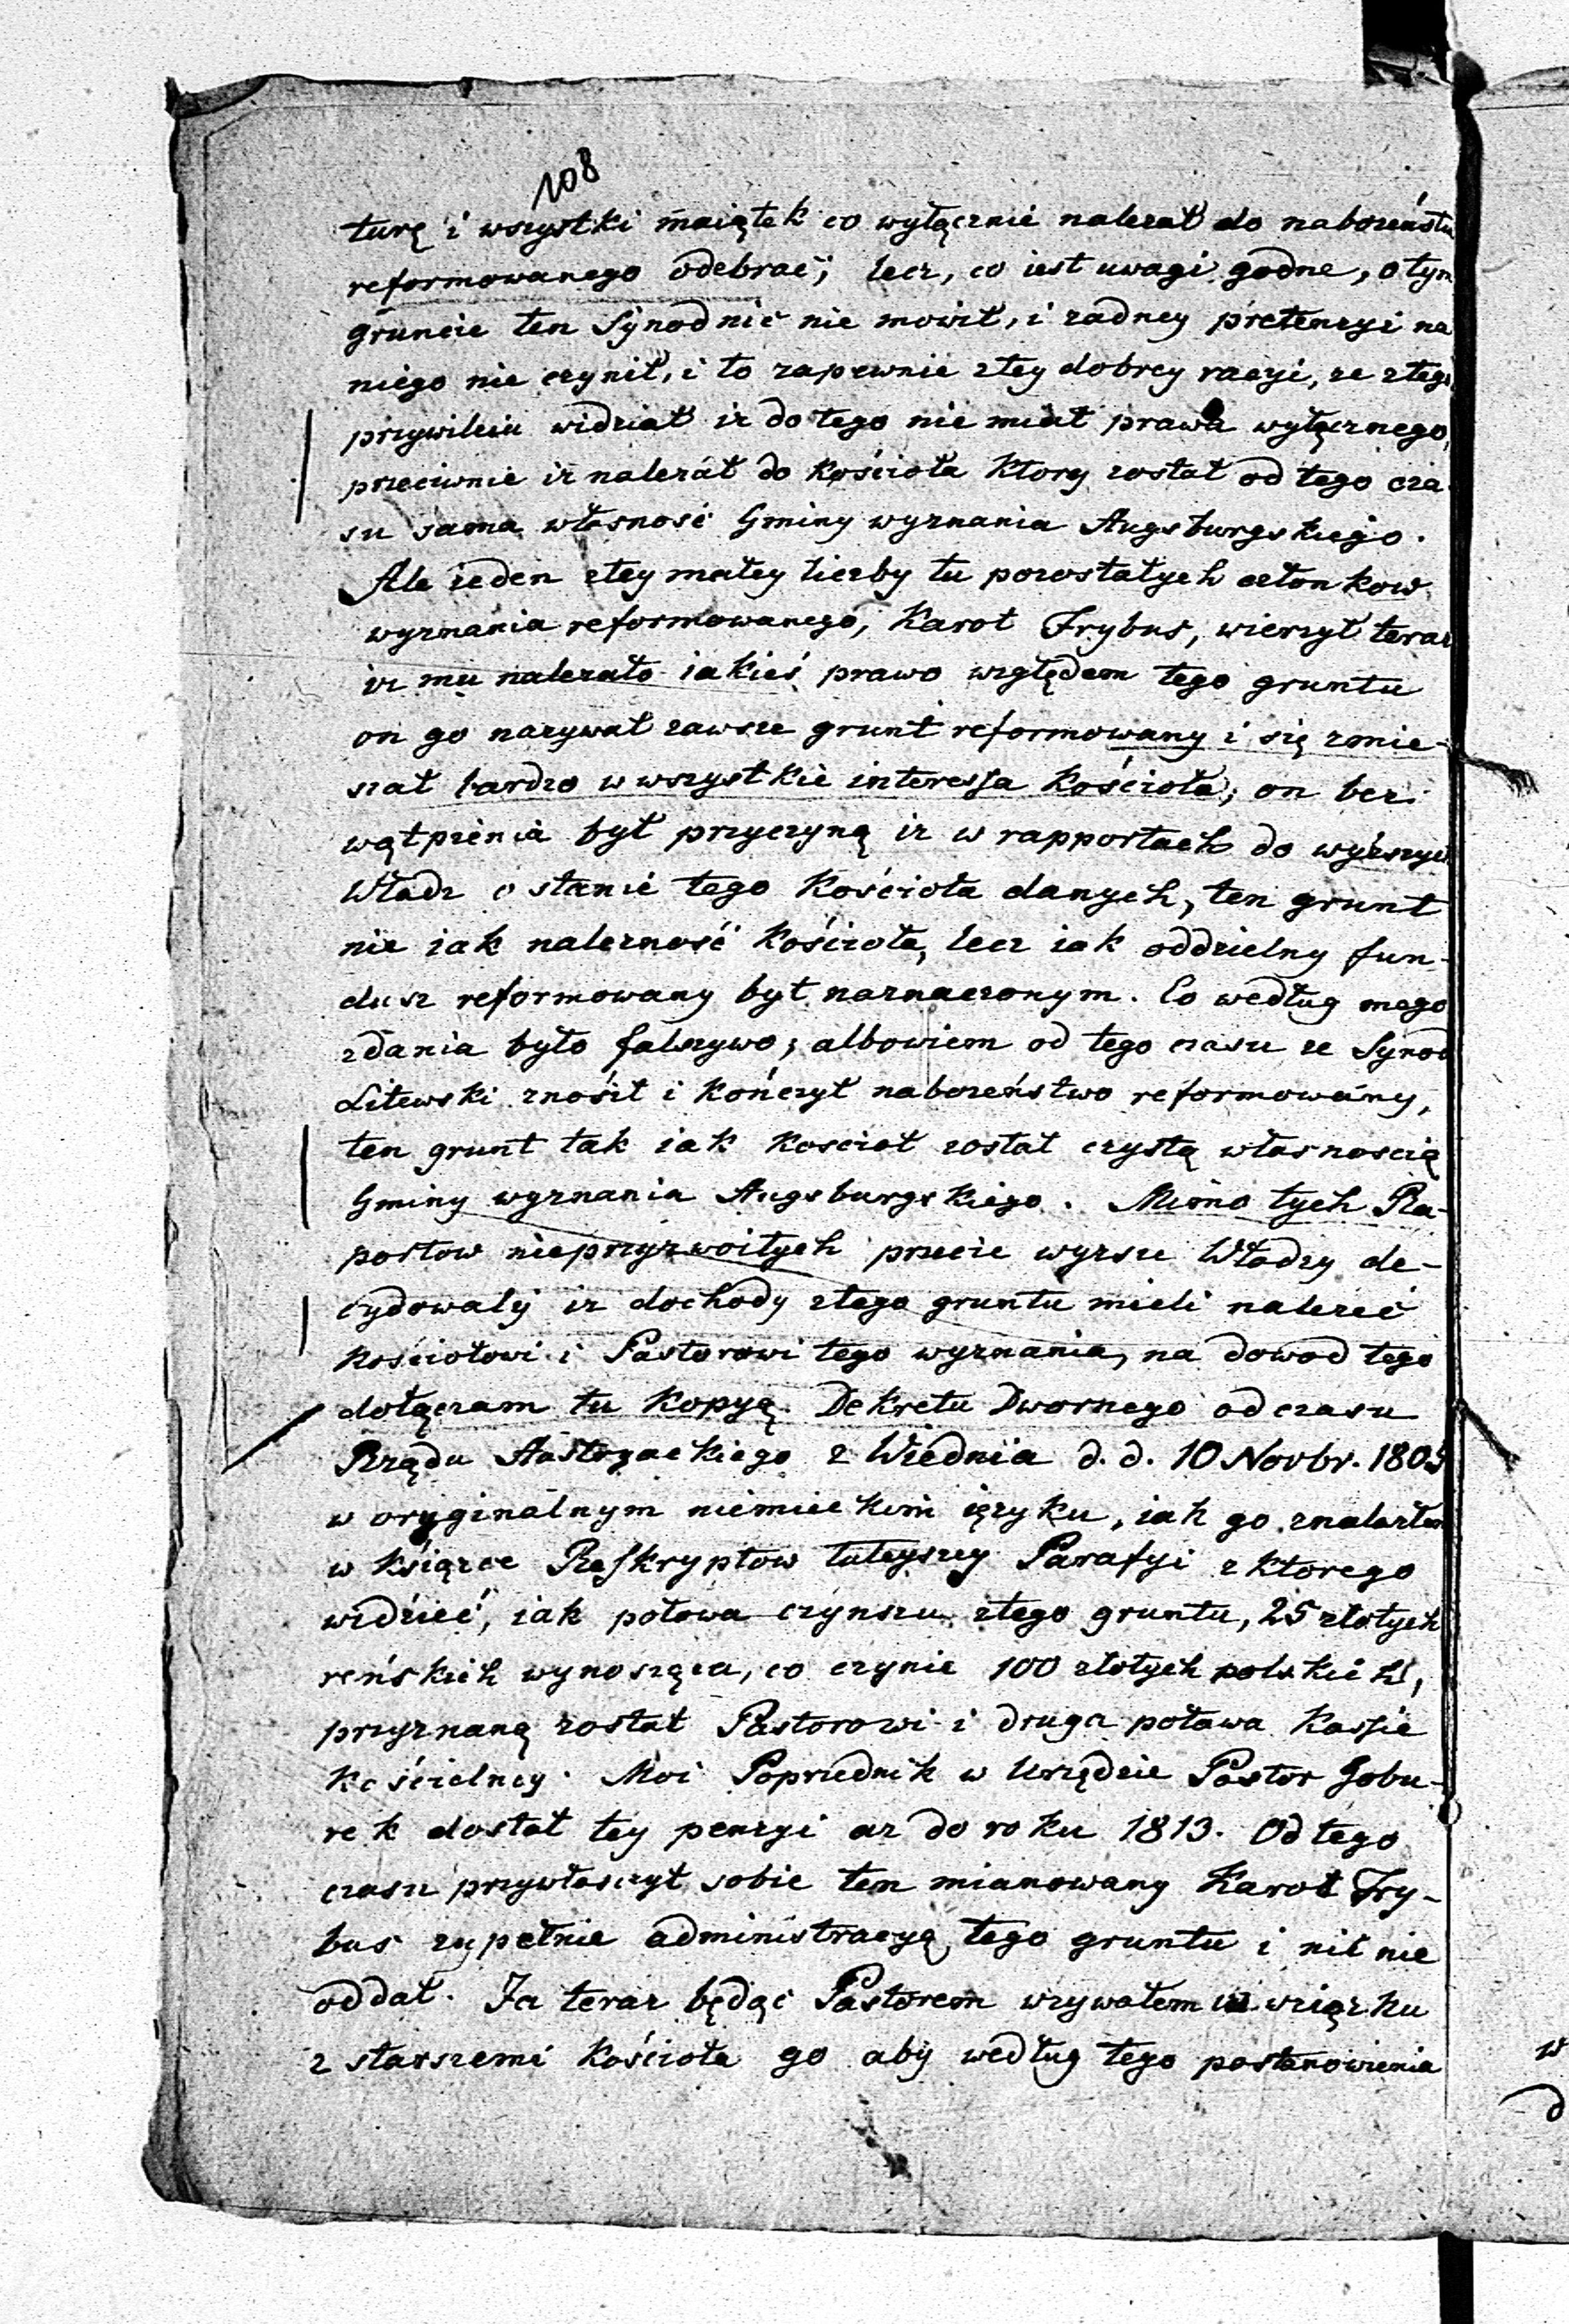 108
turę i wszystki maiątek co wyłącznie nalezał do nabozeństw
reformowanego odebrać; lecz, co iest uwagi godne, o tym
gruncie ten Synod nic nie mowił, i zadney pretenzyi na
niego nie czynił, i to zapewnie ztey dobrey racyi, ze ztego
przywileiu widział iz do tego nie miał prawa wyłącznego,
przeciwnie iz nalezał do Kościoła Ktory został od tego cza-
su sama własność Gminy wyznania Augsburgskiego.
Ale ieden ztey małey liczby tu pozostałych członkow
wyznania reformowanego, Karol Frybus, wierzył teraz
iz mu nalezało iakieś prawo względem tego gruntu
on go nazywał zawsze grunt reformowany i się zmie-
szał bardzo w wszystkie interessa Kościoła; on bez
wątpienia był przyczyną iz w rapportach do wyższych
Władz o stanie tego Kościoła danych, ten grunt
nie iak nalezność Kościoła, lecz iak oddzielny fun-
dusz reformowany był naznaczonym. Co według mego
zdania było falszywo; albowiem od tego czasu ze Synod
Litewski znosił i kończył nabozeństwo reformowany,
ten grunt tak iak Kosciol został czystą własnoscią
Gminy wyznania Augsburgskiego. Mimo tych Ra-
portow nieprzyzwoitych przecie wyzsze Władzy de-
cydowaly iz dochody ztego gruntu mieli nalezeć
Kościołowi i Pastorowi tego wyznania, na dowod tego
dołączam tu Kopyą Dekretu Dwornego od czasu
Rządu Austryackiego z Wiednia d. d. 10 Novbr. 1805
w oryginalnym niemieckim ięzyku, iak go znalazłem
w ksiązce Reskryptow tuteyszey Parafyi z ktorego
widzieć, iak połowa czynszu ztego gruntu, 25 złotych
reńskich wynosząca, co czynie 100 złotych polskich,
przyznaną został Pastorowi i druga poława Kassie
Kościelney. Moi Poprzednik w Urzędzie Pastor Gobu-
rek dostał tey penzyi az do roku 1813. Od tego
czasu przywłaszczył sobie ten mianowany Karol Fry-
bus zupełnie administracyą tego gruntu i nic nie
oddał. Ja teraz będąc Pastorem wzywałem w związku
z starszemi Kościoła go aby według tego postanowienia